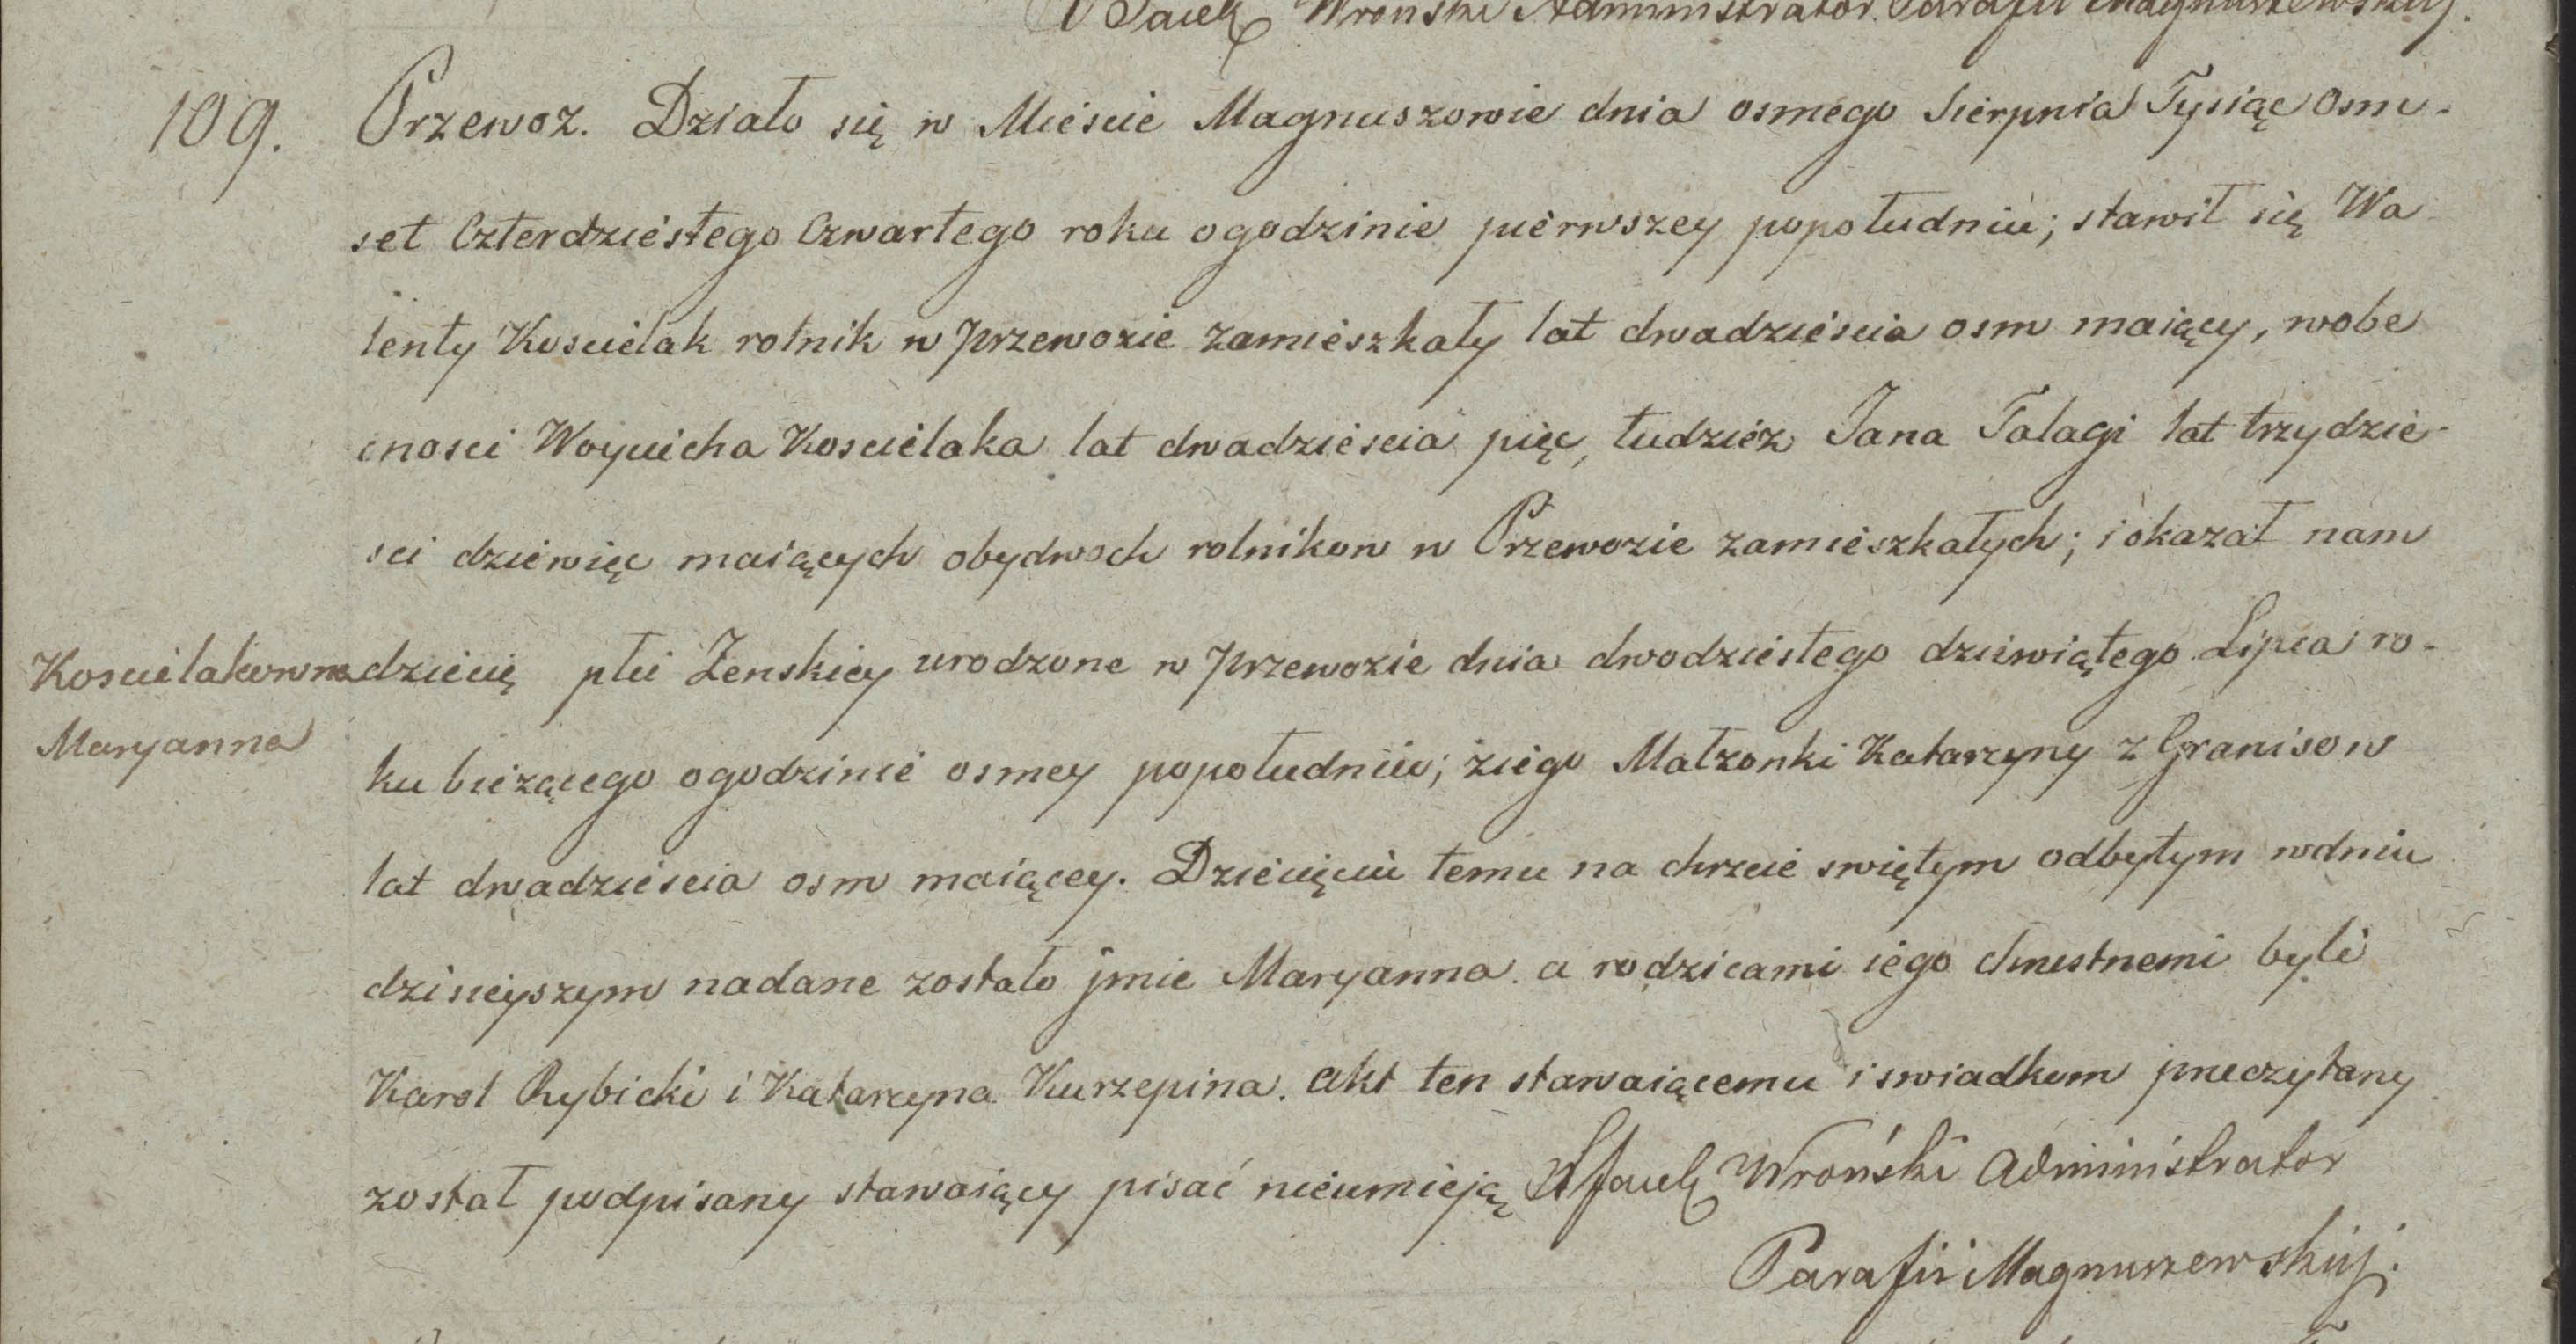 X Jacek Wronski Administrator Parafii Magnuszewskiej.
109. Przewoz. Działo się w Mieście Magnuszowie dnia osmego Sierpnia Tysiąc osm-
set Czterdziestego Czwartego roku ogodzinie pierwszey popołudniu; stawił się Wa
lenty Koscielak rolnik w Przewozie zamieszkały lat dwadzieścia osm maiący, wobe
cnosci Woyciecha Koscielaka lat dwadzieścia pięc, tudzież Jana Talagi lat trzydzie-
sci dziewięc maiących obydwoch rolnikow w Przewozie zamieszkałych; i okazał nam
Koscielakowna dziecię płci Zenskiey urodzone w Przewozie dnia dwodziestego dziewiątego Lipca ro-
Maryanna
ku bieżącego ogodzinie osmey popołudniu; ziego Małzonki Katarzyny z Granisow
lat dwadziescia osm maiącey. Dziecięciu temu na chrzcie swiętym odbytym wdniu
dzisieyszym nadane zostało jmie Maryanna. a rodzicami iego chrzestnemi byli
Karol Rybicki i Katarzyna Kurzepina. akt ten stawaiącemu i swiadkom przeczytany
został podpisany stawaiący pisać nieumieją X Jacek Wroński Administrator
Parafii Magnuszewskiej.